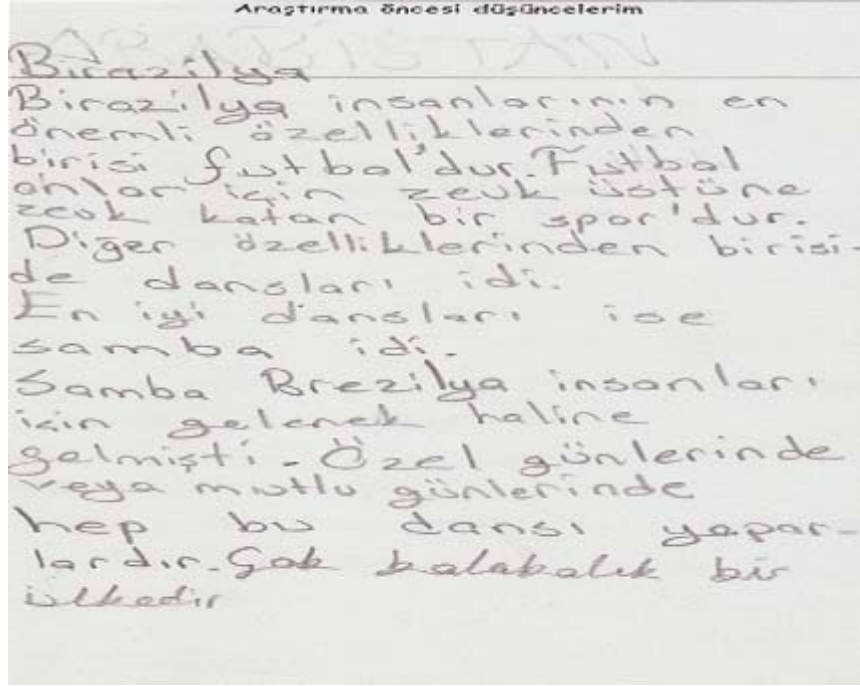 Araştırma öncesi düşüncelerim
ARABİSTAN
Birazilya
Birazilya insanlarının en
önemli özelliklerinden
birisi futbol'dur. Futbol
onlar için zevk üstüne
zevk katan bir spor'dur.
Diğer özelliklerinden birisi-
de dansları idi.
En iyi dansları ise
samba idi.
Samba Brezilya insanları
için gelenek haline
gelmişti. Özel günlerinde
veya mutlu günlerinde
hep bu dansı yapar-
lardır. Çok kalabalık bir
ülkedir